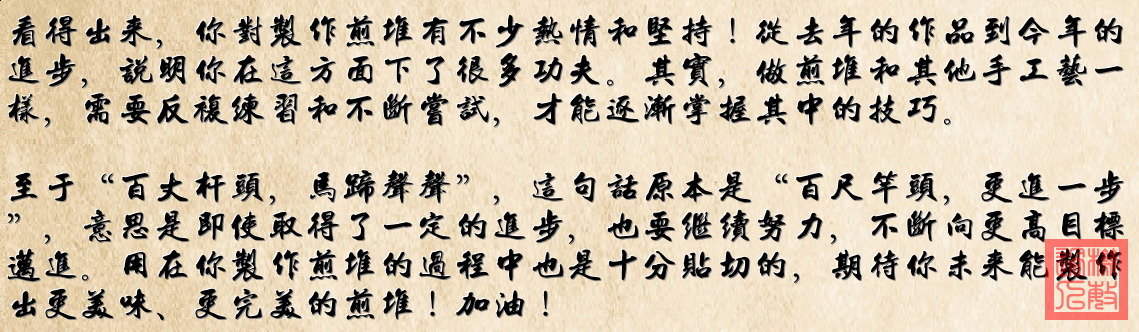 看得出來，你對製作煎堆有不少熱情和堅持！從去年的作品到今年的
進步，說明你在這方面下了很多功夫。其實，做煎堆和其他手工藝一
樣，需要反複練習和不斷嘗試，才能逐漸掌握其中的技巧。
至于“百丈杆頭，馬蹄聲聲”，這句話原本是“百尺竿頭，更進一步
”，意思是即使取得了一定的進步，也要繼續努力，不斷向更高目標
邁進。用在你製作煎堆的過程中也是十分貼切的，期待你未來能製作
出更美味、更完美的煎堆！加油！